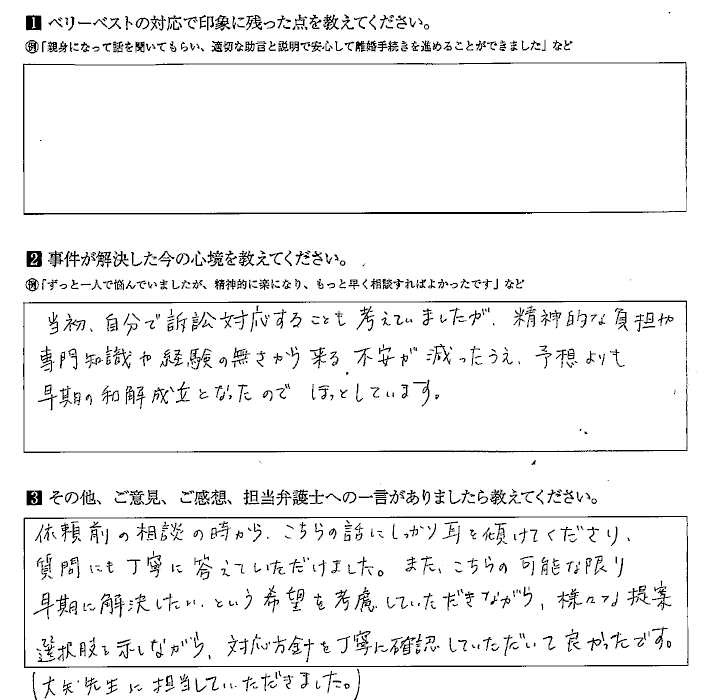 1 ベリーベストの対応で印象に残った点を教えてください。
例「親身になって話を聞いてもらい、適切な助言と説明で安心して離婚手続きを進めることができました」など
2 事件が解決した今の心境を教えてください。
例「ずっと一人で悩んでいましたが、精神的に楽になり、もっと早く相談すればよかったです」など
当初、自分で訴訟対応することも考えていましたが、精神的な負担や
専門知識や経験の無さから来る不安が減ったうえ、予想よりも
早期の和解成立となったのでほっとしています。
3 その他、ご意見、ご感想、担当弁護士への一言がありましたら教えてください。
依頼前の相談の時から、こちらの話にしっかり耳を傾けてくださり、
質問にも丁寧に答えていただけました。また、こちらの可能な限り
早期に解決したい、という希望を考慮していただきながら、様々な提案
選択肢を示しながら、対応方針を丁寧に確認していただいて良かったです。
(大矢先生に担当していただきました。)